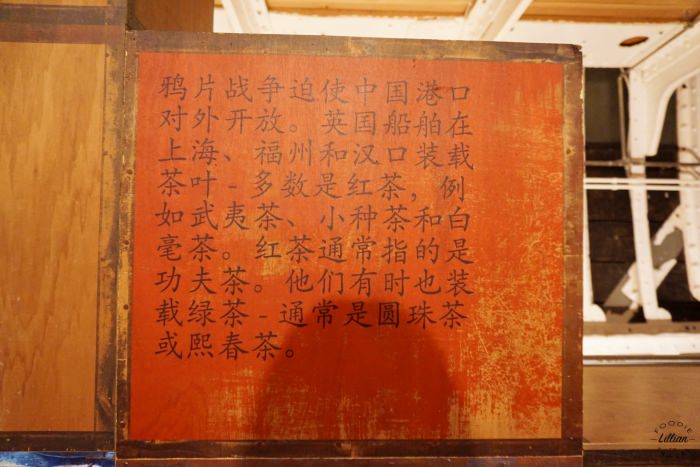 鸦片战争迫使中国港口
对外开放。英国船舶在
上海、福州和汉口装载
茶叶-多数是红茶，例
如武夷茶、小种茶和白
毫茶。红茶通常指的是
功夫茶。他们有时也装
载绿茶-通常是圆珠茶
或熙春茶。
FOODIE
Lillian